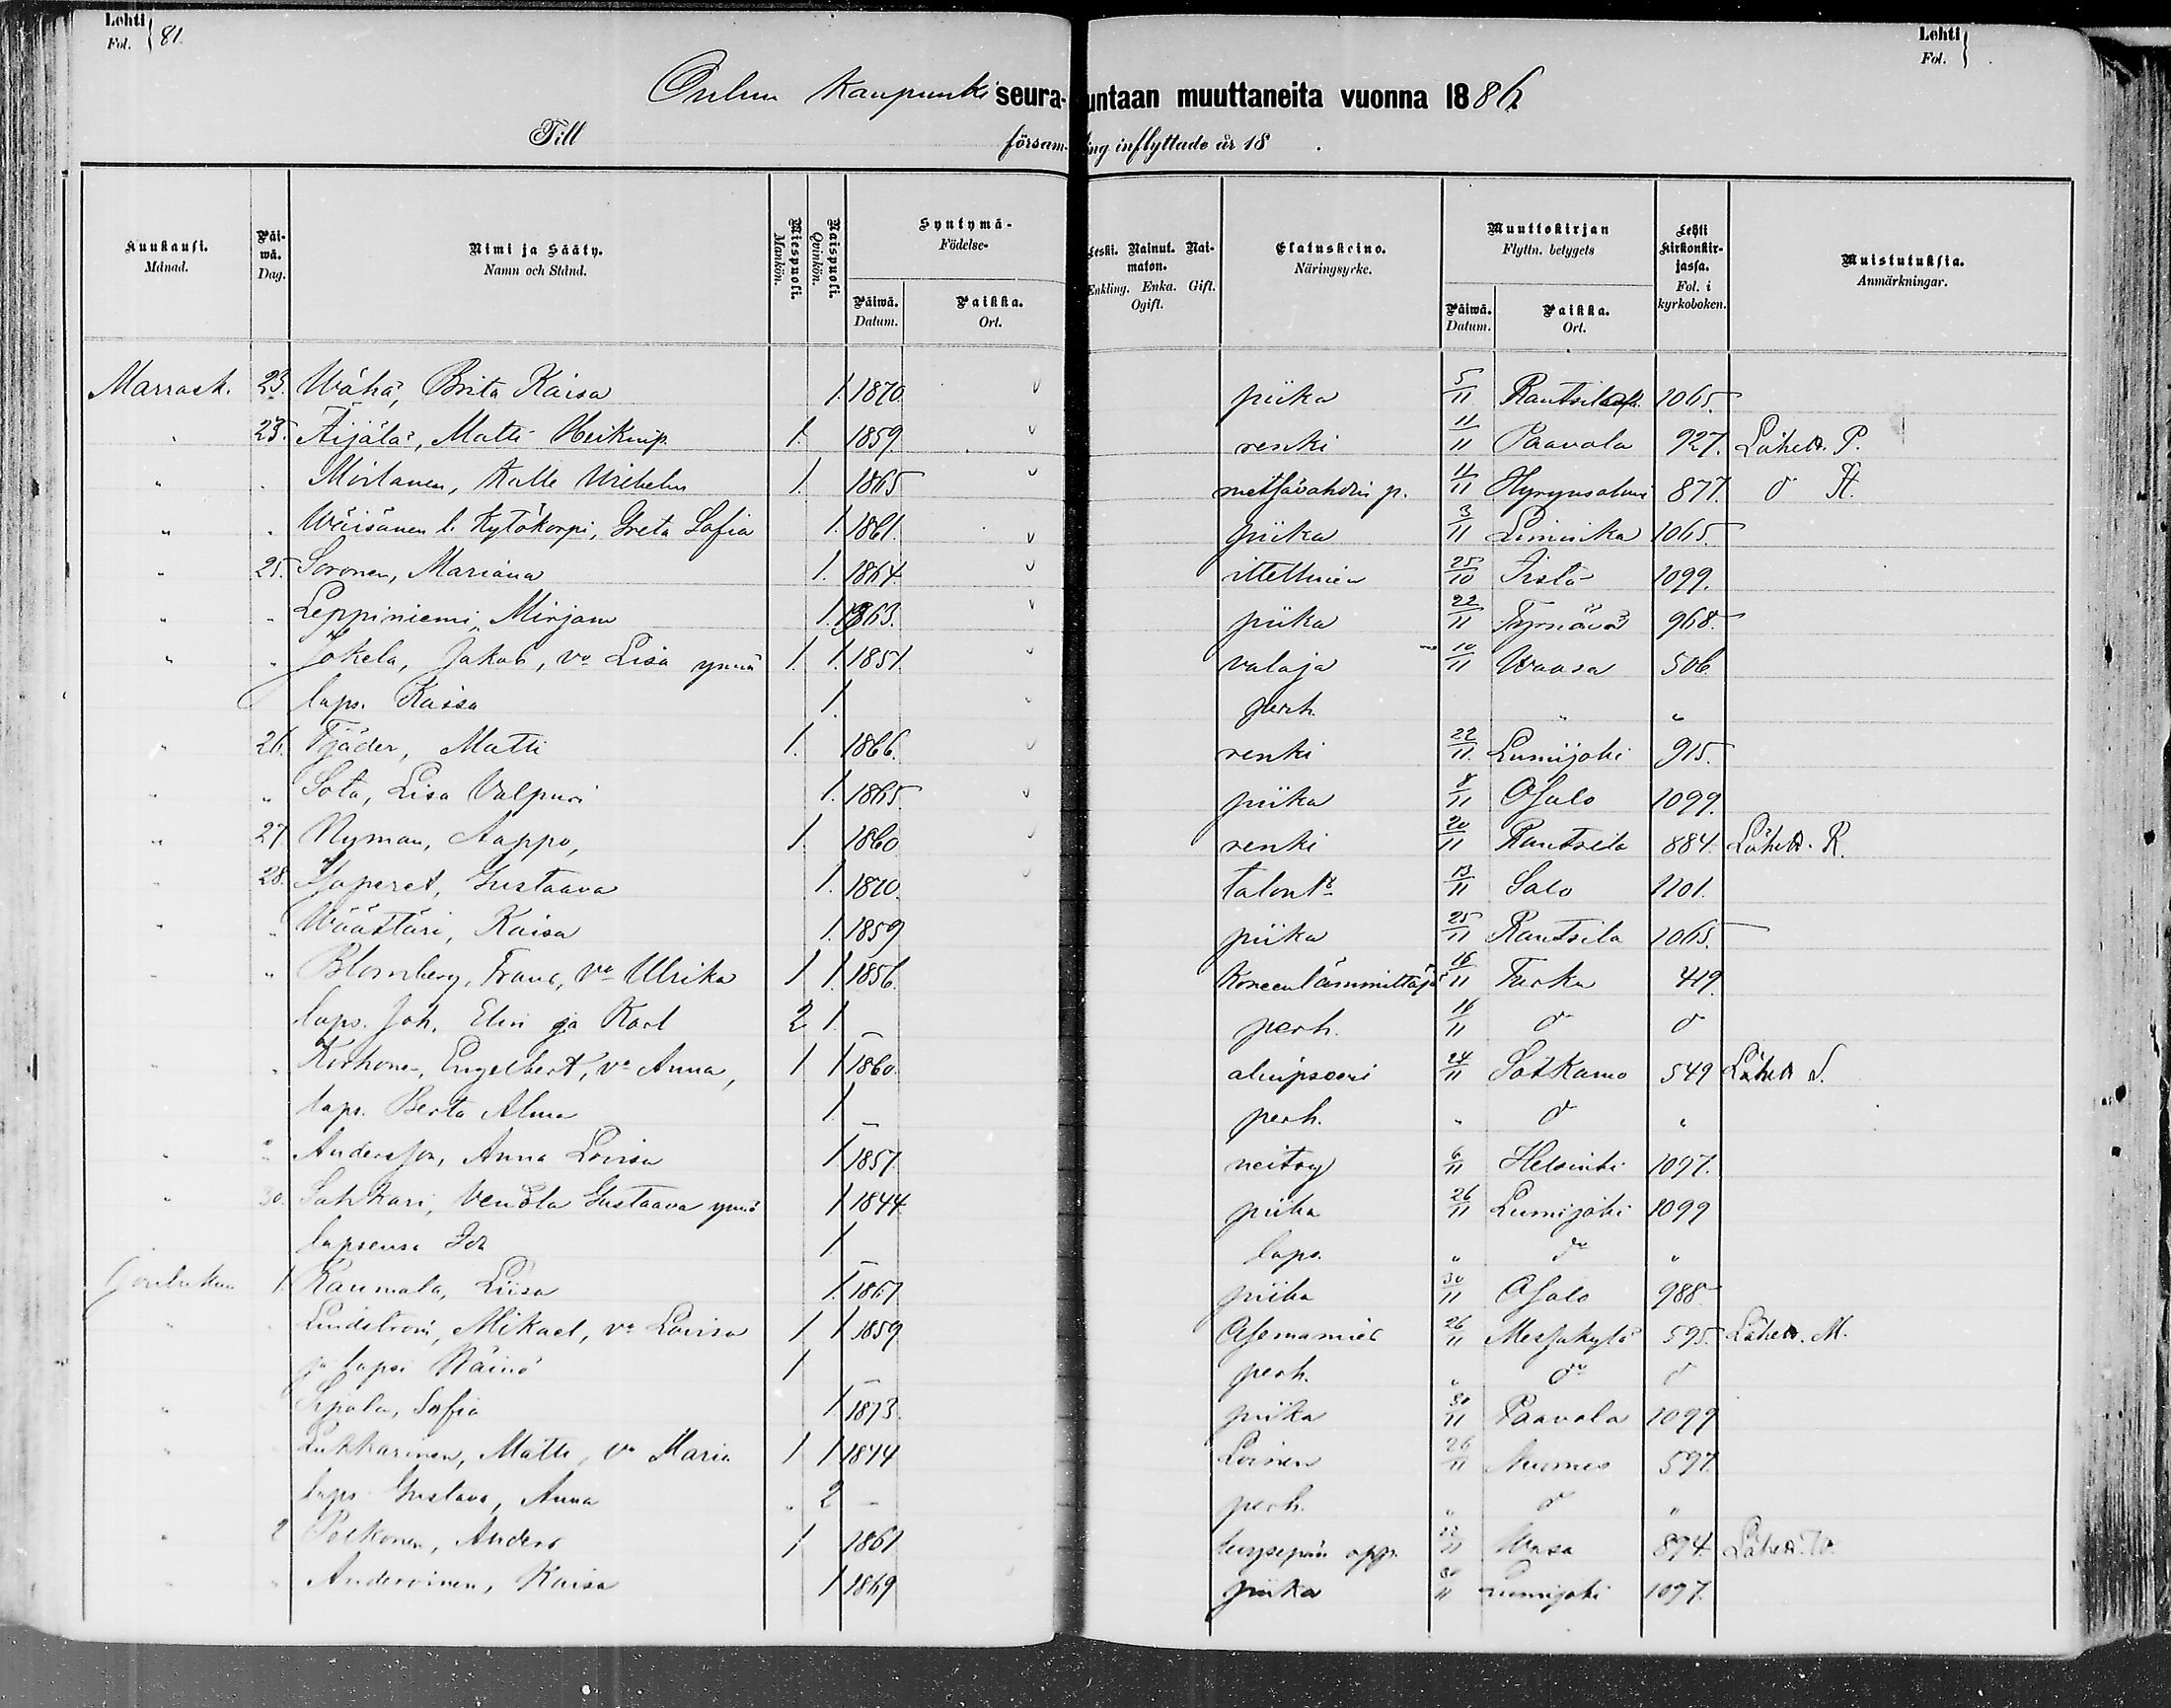 Lehti Fol. } 81.
Lehti Fol. }
Oulun kaupunki seurakuntaan muuttaneita vuonna 1886.
Till församling inflyttade år 18 .
Kuukausi. Månad. Päiwä. Dag. Nimi ja Sääty. Namn och Stånd. Miespuoli. Mankön. Naispuoli. Qvinkön. Syntymä- Födelse- Päiwä. Datum. Paikka. Ort. Leski. Nainut. Naimaton. Enkling. Enka. Gift. Ogift. Elatuskeino. Näringsyrke. Muuttokirjan Flyttn. betygets Päiwä. Datum. Paikka. Ort. Lehti kirkonkirjassa. Fol. i kyrkoboken. Muistutuksia. Anmärkningar.
Marrask. 23. Wähä, Brita Kaisa 1. 1870. piika 5/11 Rantsila 1065.
" 23. Äijälä, Matti Heikinp. 1. 1859. renki 11/11 Paavola 927. Lähett. P.
" " Moilanen, Kalle Wilhelm 1. 1865 metsävahdin p. 4/11 Hyrynsalmi 877. d:o H.
" " Wäisänen l. Kytökorpi, Greta Sofia 1. 1861. piika 3/11 Liminka 1065.
" 25. Soronen, Mariana 1. 1864 itellinen 25/10 1099.
" " Leppiniemi, Mirjam 1. 1863. piika 22/11 Tyrnävä 968.
" " Jokela, Jakob, vo Lisa ynnä 1. 1. 1851. valaja 10/11 Waasa 506.
laps. Kaisa 1. perh. " "
" 26. Tjäder, Matti 1. 1866. renki 22/11 Lumijoki 915.
" " Sota, Lisa Valpuri 1. 1865 piika 8/11 O Salo 1099.
" 27. Nyman, Aappo, 1. 1860. renki 20/11 Rantsila 884. Lähett. R.
" 28. Gustaava 1. 1870. talont. 13/11 Salo 1101.
" " Wäästäri, Kaisa 1. 1859 piika 25/11 Rantsila 1065.
" " Blomberg, Frans, vo Ulrika 1 1. 1856. Koneenlämmittäjä 16/11 Turku 419.
laps. Joh. Elin ja Karl 2 1. – perh. 16/11 d:o d:o
" " Korhonen, Engelbert, vo Anna, 1 1 1860. aliupseeri 24/11 Sotkamo 549 Lähett S.
laps. Berta Alma 1 – perh. " d:o "
" " Andersson, Anna Lovisa 1 1857. neitsy 6/11 Helsinki 1097.
" 30. Sahkari, Gustaava ynnä 1 1844. piika 26/11 Lumijoki 1099
lapsensa Ida 1 – laps. " d:o "
Jouluku 1. Raumala, Liisa 1. 1867 piika 30/11 O Salo 988.
" Lindström, Mikael, vo Lovisa 1 1 1859 Asemamies 26/11 Messukylä 595. Lähett. M.
ja lapsi Wäinö 1 – perh. " d:o d:o
" Sipola, Sofia 1 1873. piika 30/11 Paavola 1099
" Lukkarinen, Matti, vo Maria 1 1 1844 Loinen 26/11 Nurmes 597.
laps. Gustava, Anna " 2 – perh. " d:o "
" 2 Pelkonen, Anders 1 1861 levysepän opp. 22/11 Wasa 894. Lähett. W.
" " Andersinen, Kaisa 1 1869 piika 30/11 Lumijoki 1097.